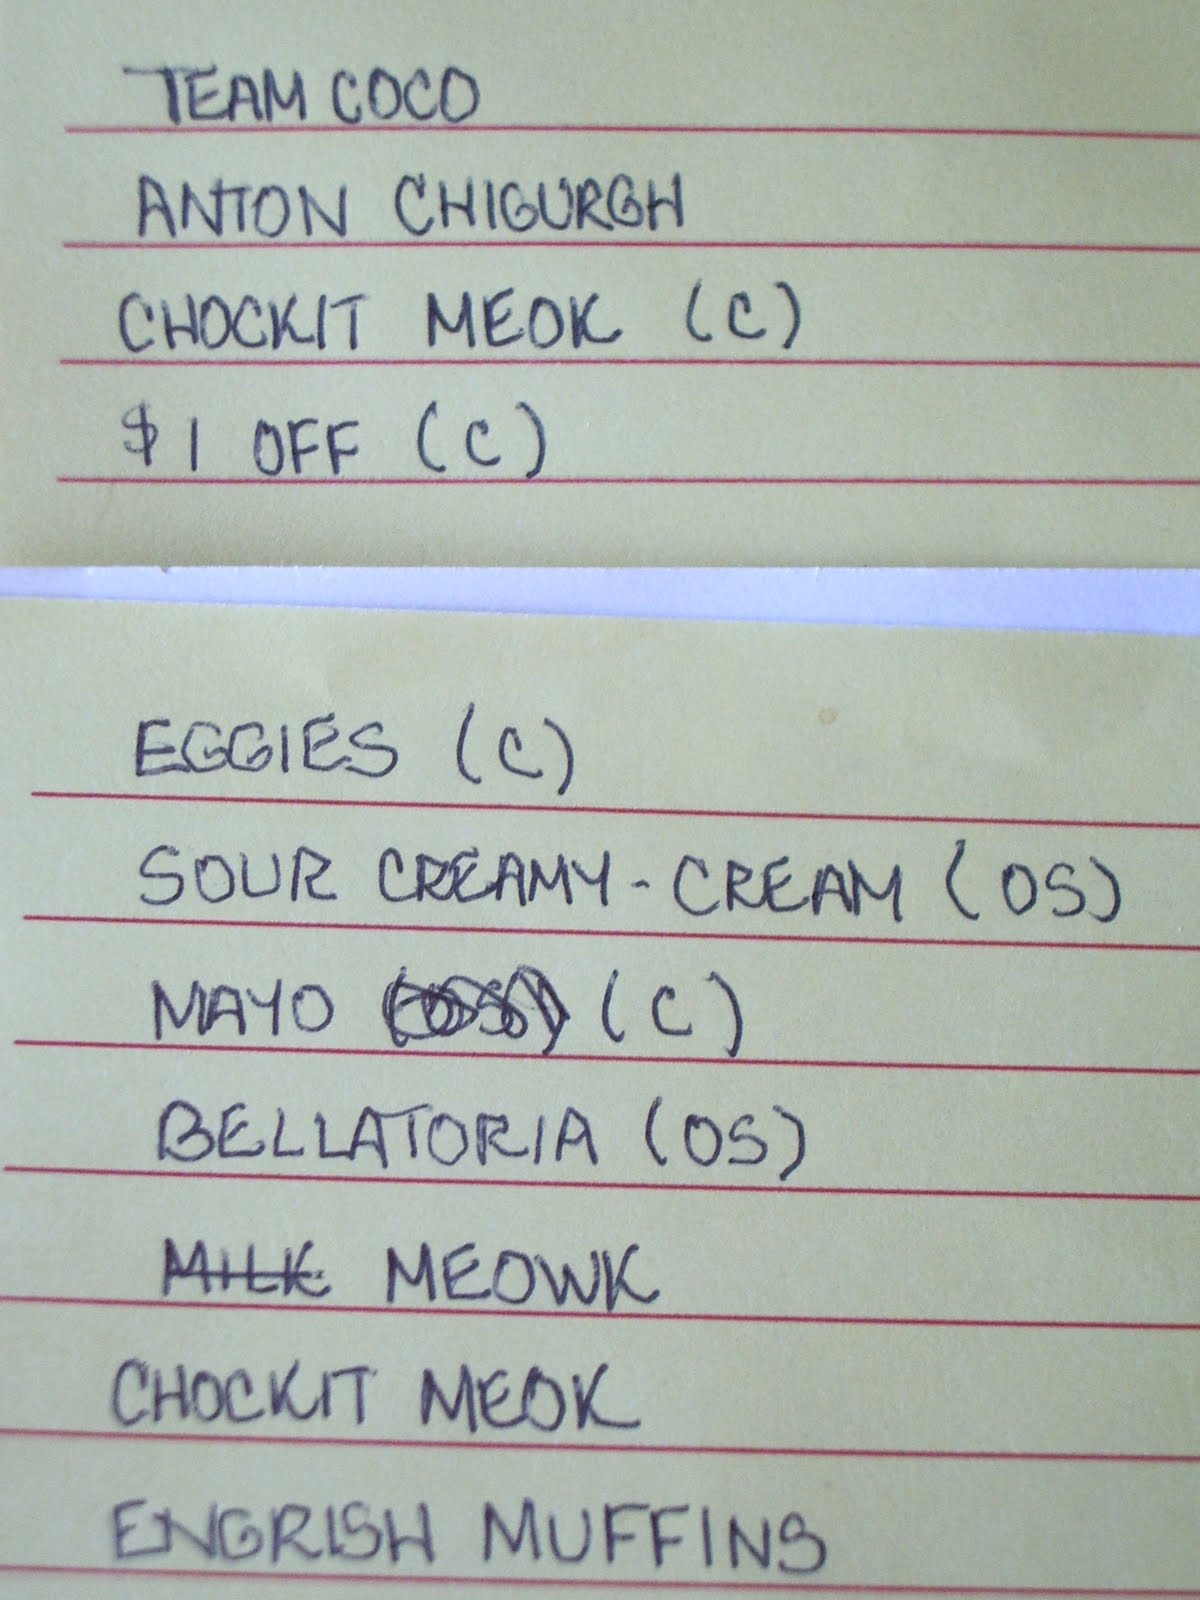 TEAM COCO
ANTON CHIGURGH
CHOCKIT MEOK (C)
$1 OFF (C)
EGGIES (C)
SOUR CREAMY-CREAM (OS)
MAYO (OS) (C)
BELLATORIA (OS)
MILK MEOWK
CHOCKIT MEOK
ENGRISH MUFFINS